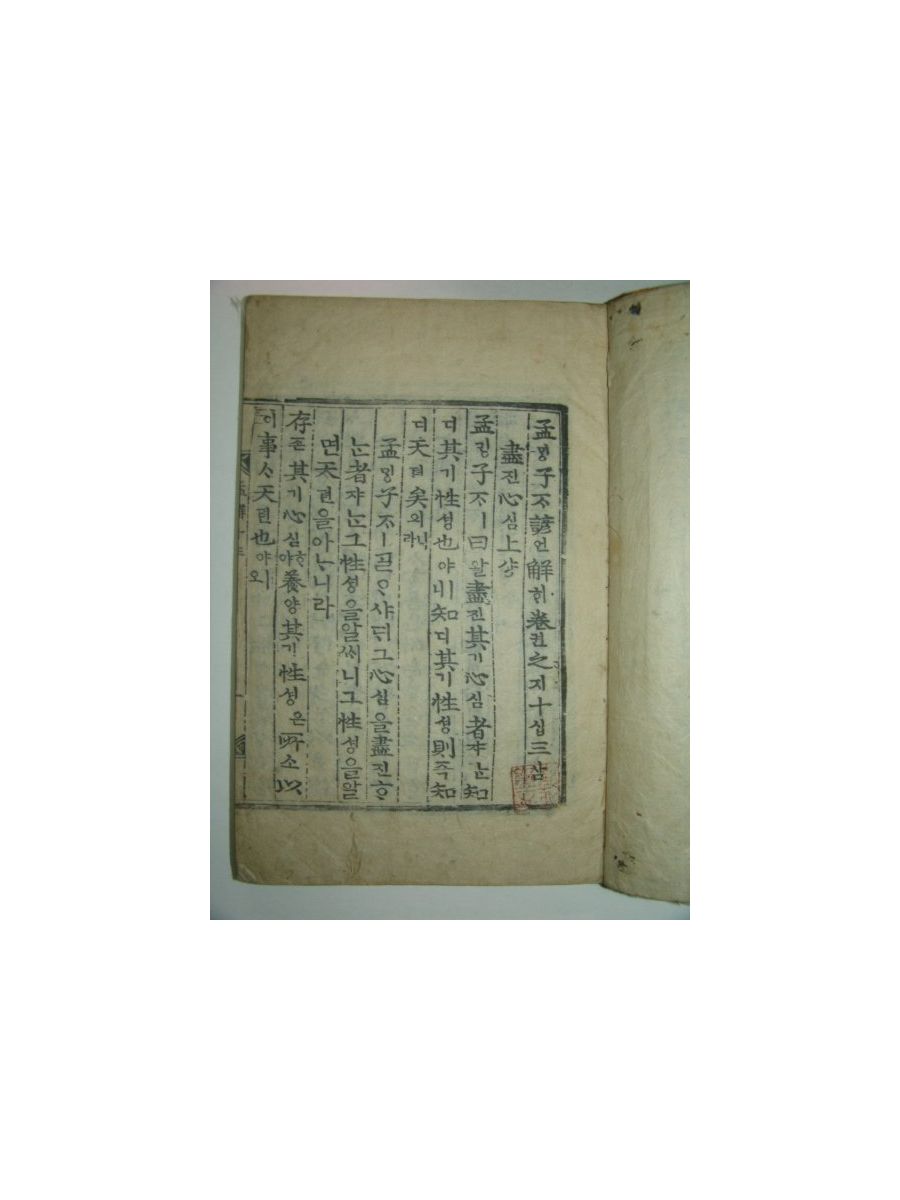 孟ᄆᆡᆼ子ᄌᆞ諺언解ᄒᆡ卷권之지十십三삼
盡진心심上샹
孟ᄆᆡᆼ子ᄌᆞㅣ曰왈盡진其기心심者쟈ᄂᆞᆫ知
디其기性셩也야ㅣ니知디其기性셩則즉知
디天텬矣의니라
孟ᄆᆡᆼ子ᄌᆞㅣᄀᆞᆯᄋᆞ샤ᄃᆡ그心심을盡진ᄒᆞ
ᄂᆞᆫ者쟈ᄂᆞᆫ그性셩을알ᄯᅵ니그性셩을알
면天텬을아ᄂᆞ니라
存존其기心심ᄒᆞ야養양其기性셩은所소以
이事ᄉᆞ天텬也야ㅣ오